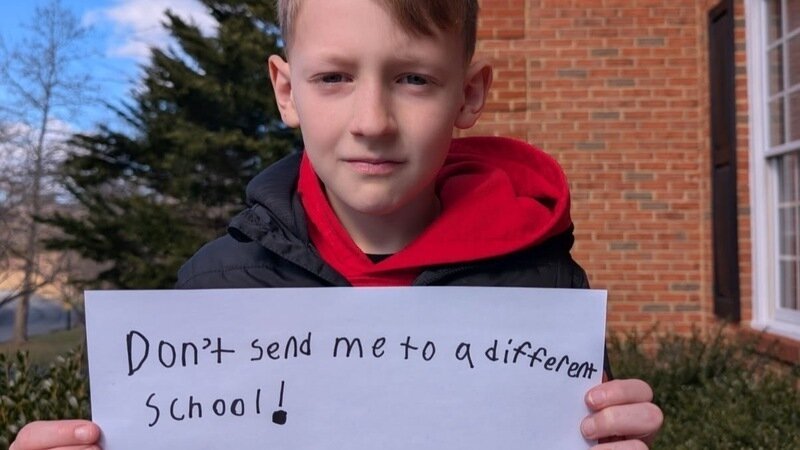 Don't send me to a different
school!